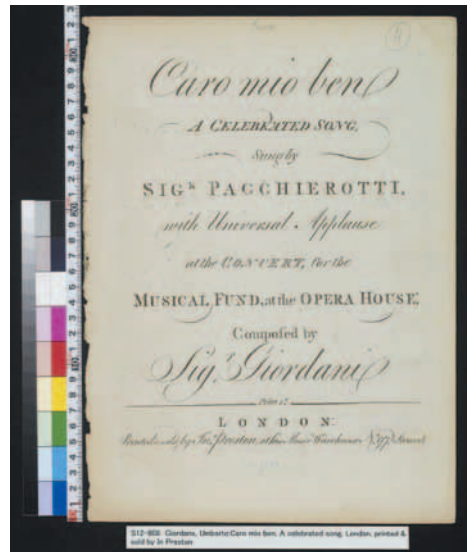 Caro mio ben
A CELEBRATED SONG,
Sung by
SIGR PACCHIEROTTI,
with Universal Applause
at the CONCERT, for the
MUSICAL FUND, at the OPERA HOUSE,
Composed by
Sigr. Giordani
LONDON:
Printed & sold by Jno. Preston, at his Music Warehouse 97 Strand
S12-808 Giordano, Umberto:Caro mio ben. A celebrated song. London, printed &
sold by Jn Preston